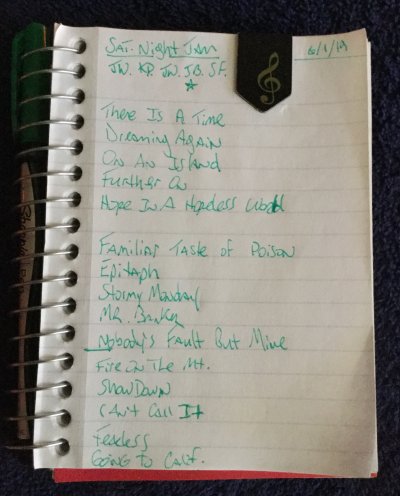 Sat. Night Jam
6/1/19
JW. KP. JW. JB. SF.
There Is A Time
Dreaming Again
On An Island
Further On
Hope In A Hopeless World
Familiar Taste of Poison
Epitaph
Stormy Monday
Mr. Banker
Nobody's Fault But Mine
Fire In The Mt.
Showdown
Can't Call It
Fearless
Going to Calif.